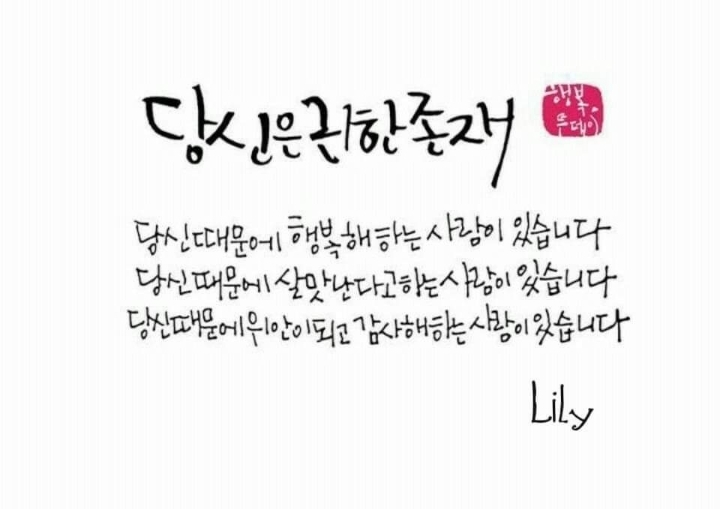 당신은귀한존재
행복.
투데이
당신때문에 행복해하는 사람이 있습니다
당신때문에 살맛난다고하는사람이 있습니다
당신때문에위안이되고 감사해하는 사람이있습니다
Lily